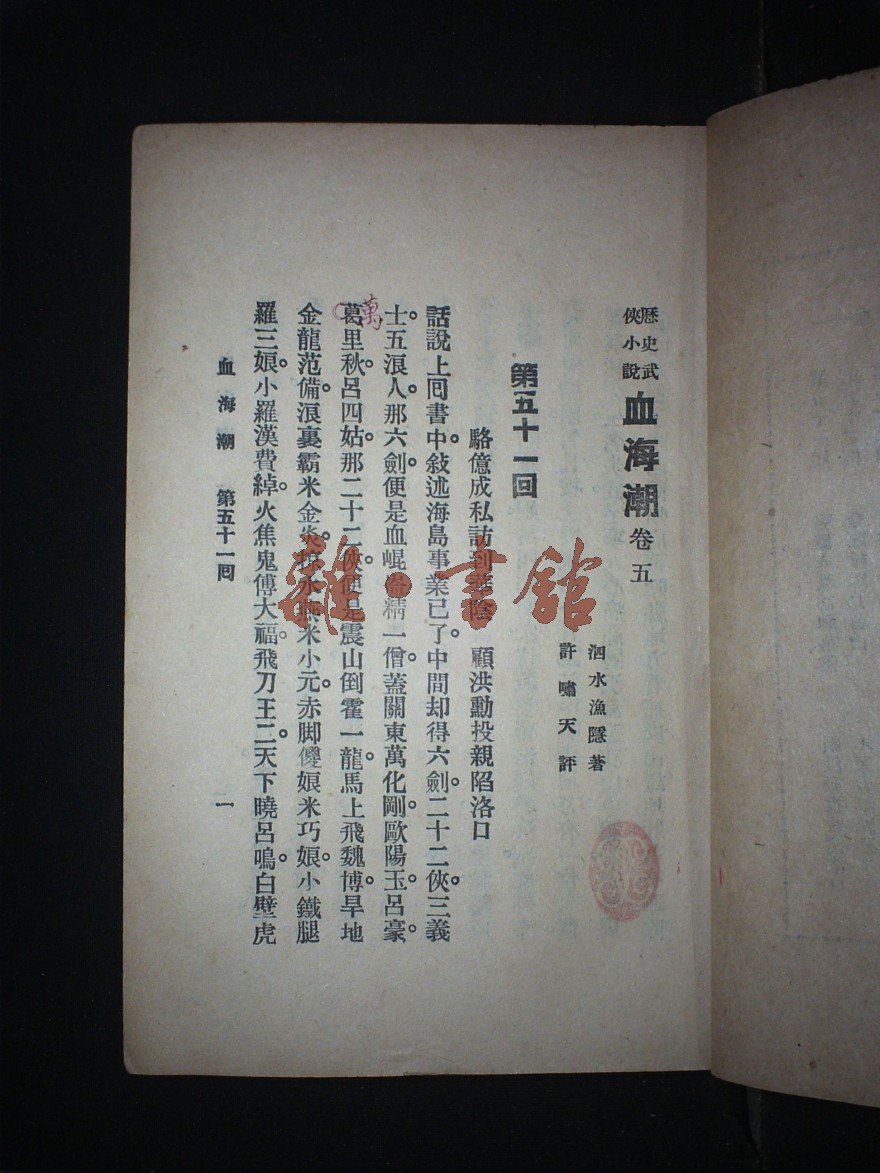 歷史武
俠小說
血海潮 卷五
泗水漁隱著
許嘯天評
第五十一回
駱億成私訪到華陰 顧洪勳投親陷洛口
話說上回書中。敍述海島事業已了。中間却得六劍。二十二俠。三義
士。五浪人。那六劍。便是血崐崙精一僧。蓋關東萬化剛。歐陽玉。呂豪。
葛里秋。呂四姑。那二十二俠。便是震山倒霍一龍。馬上飛魏博。旱地
金龍范備。浪裏霸米金炎。掠水燕米小元。赤脚儍娘米巧娘。小鐵腿
羅三娘。小羅漢費綽。火焦鬼傅大福。飛刀王二。天下曉呂鳴。白壁虎
萬
血海潮 第五十一回
一
雜·書館